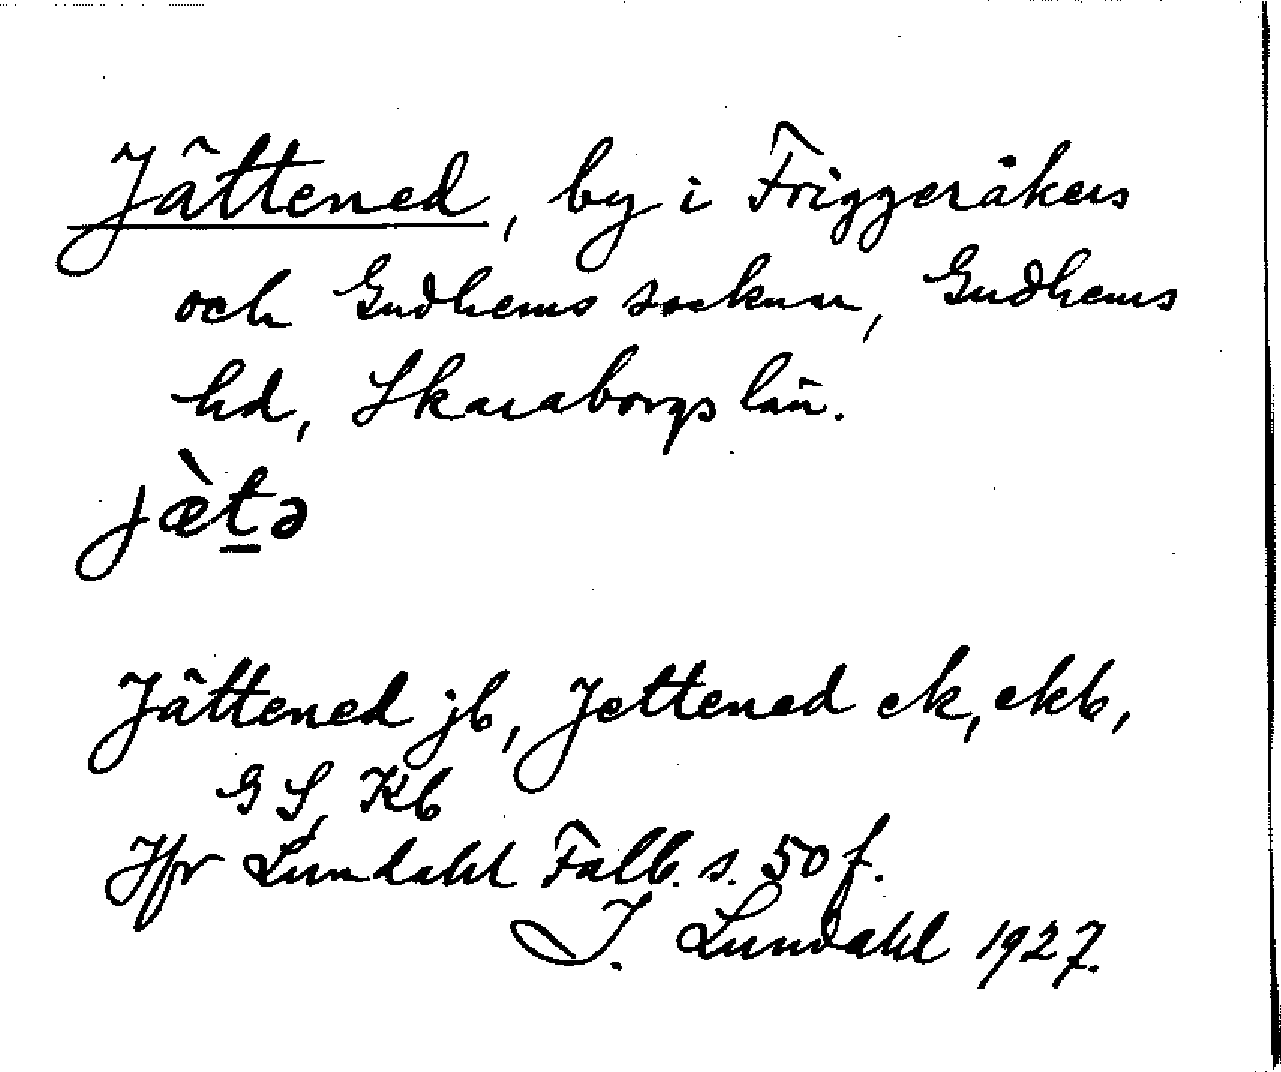 Jättened, by i Friggeråkers
och Gudhems socknar, Gudhems
hd, Skaraborgs län.
jæ̀t̲ə
Jättened jb, Jettened ek, ekb,
GS, Kb
Jfr Lundahl Falb. s. 50 f.
I. Lundahl 1927.